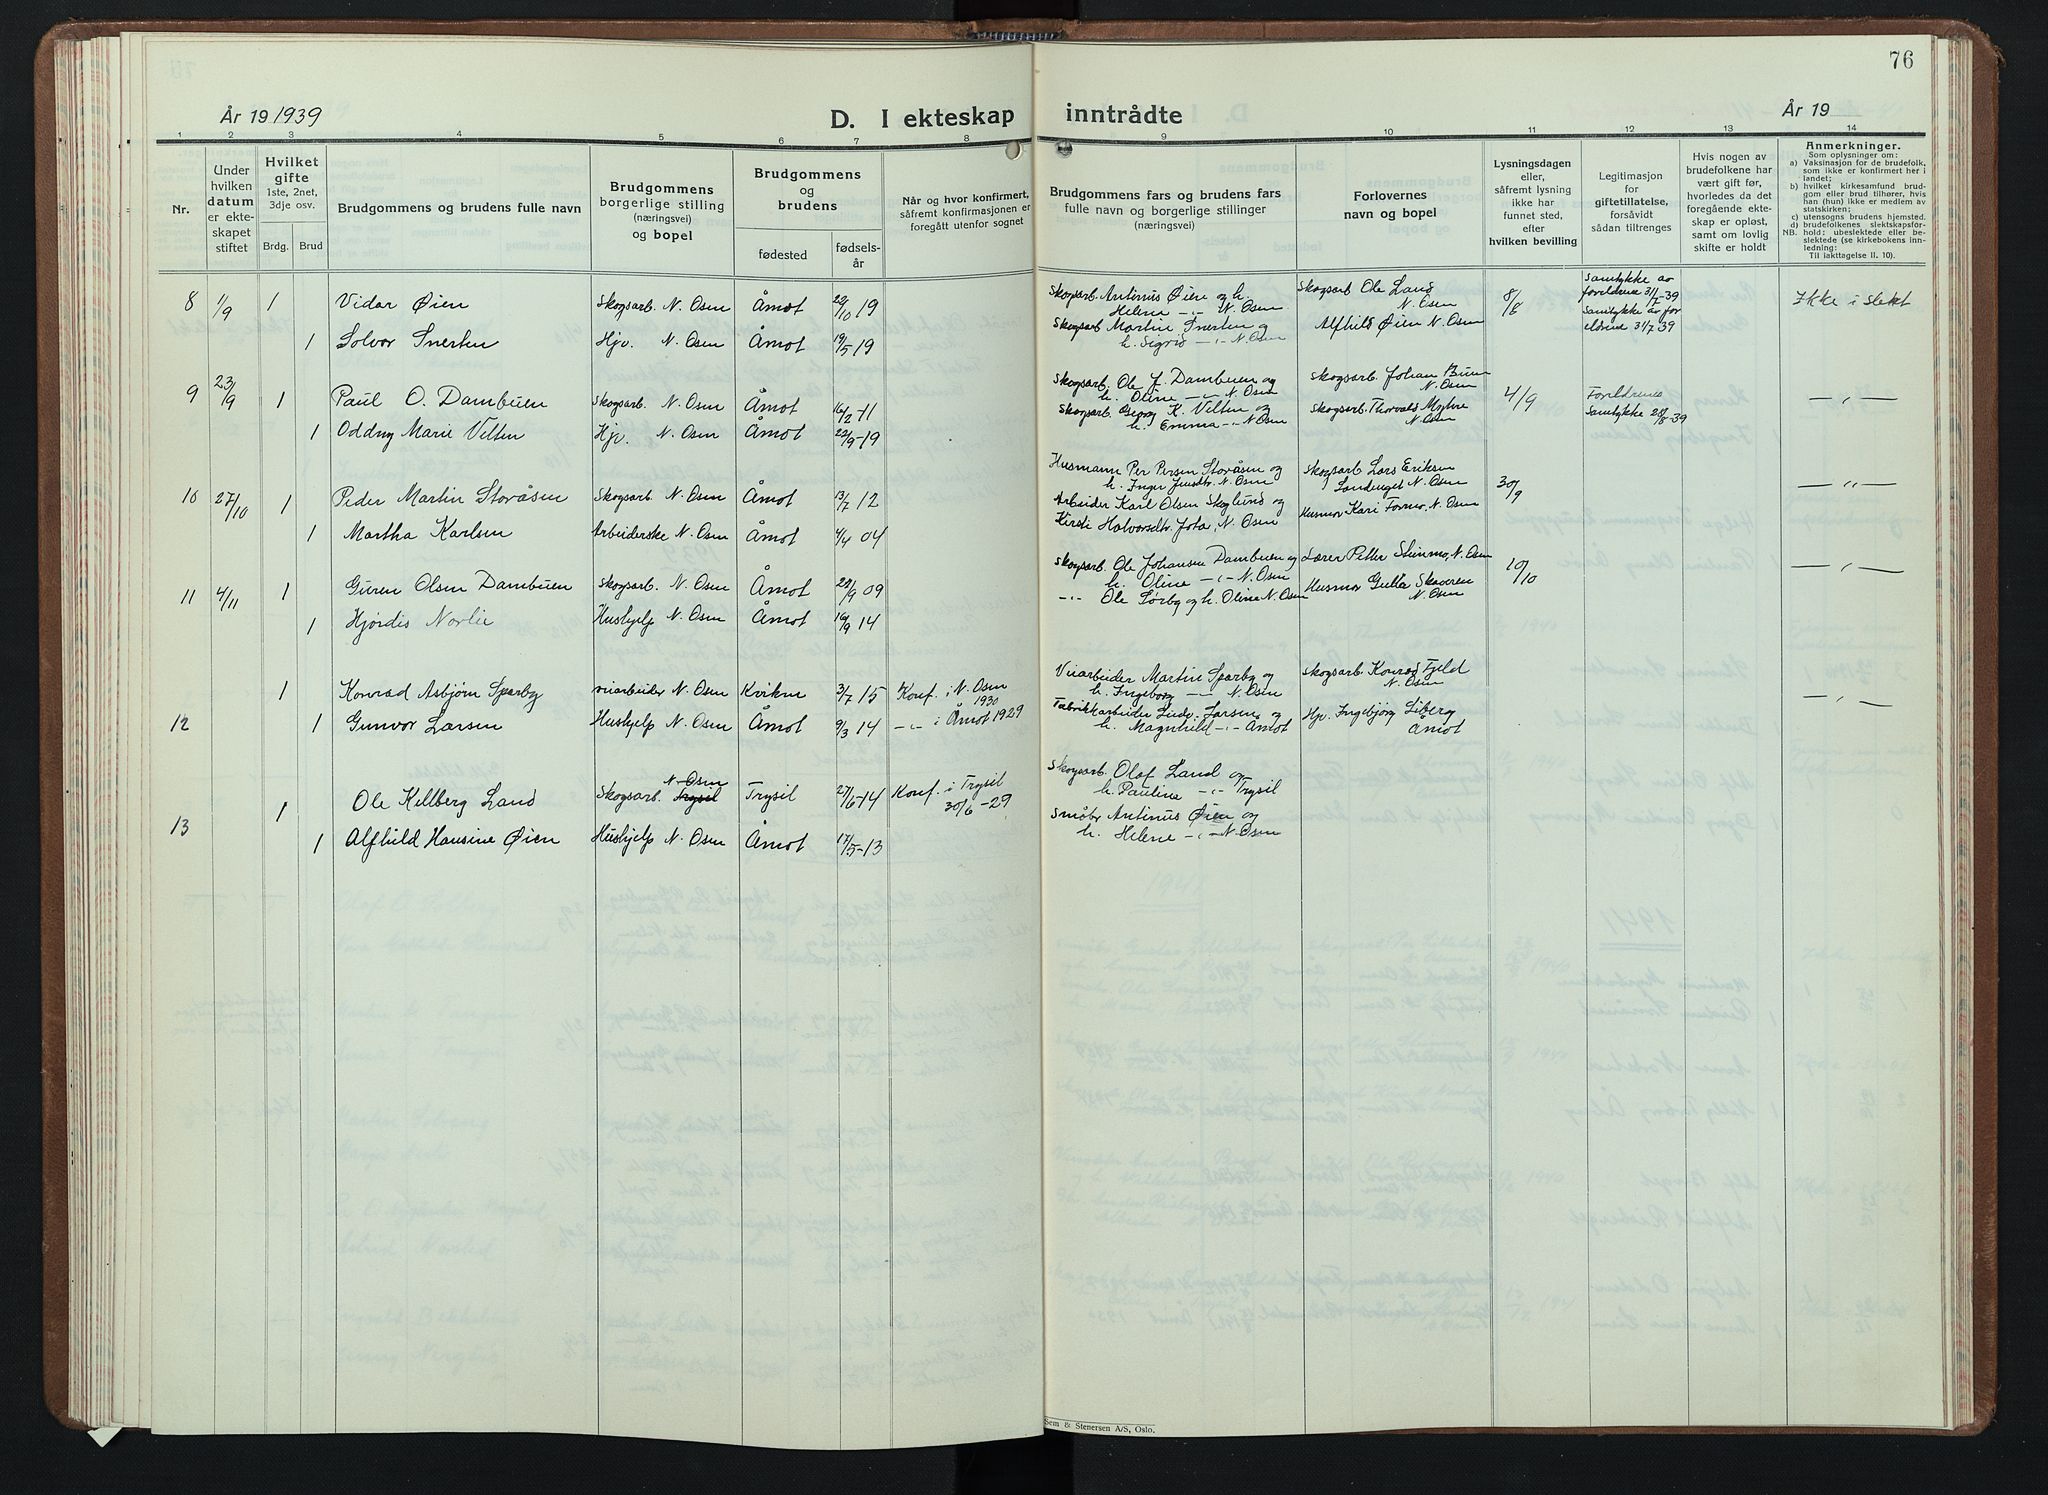 76
År 19 1939
D. I ekteskap inntrådte
År 19
1 2 3 4 5 6 7 8 9 10 11 12 13 14
Nr.
Under hvilken datum er ekteskapet stiftet
Hvilket gifte 1ste, 2net, 3dje osv.
Brdg. Brud
Brudgommens og brudens fulle navn
Brudgommens borgerlige stilling (næringsvei) og bopel
Brudgommens og brudens
fødested
fødselsår
Når og hvor konfirmert, såfremt konfirmasjonen er foregått utenfor sognet
Brudgommens fars og brudens fars fulle navn og borgerlige stillinger (næringsvei)
Forlovernes navn og bopel
Lysningsdagen eller, såfremt lysning ikke har funnet sted, efter hvilken bevilling
Legitimasjon for giftetillatelse, forsåvidt sådan tiltrenges
Hvis nogen av brudefolkene har vært gift før, hvorledes da det foregående ekteskap er opløst, samt om lovlig skifte er holdt
Anmerkninger.
Som oplysninger om:
a) Vaksinasjon for de brudefolk, som ikke er konfirmert her i landet;
b) hvilket kirkesamfund brudgom eller brud tilhører, hvis han (hun) ikke er medlem av statskirken;
c) utensogns brudens hjemsted.
d) brudefolkenes slektskapsforhold; ubeslektede eller beslektede (se kirkebokens innledning:
NB.
Til iakttagelse II. 10).
8 1/9 1 Vidar Øien Skogsarb. N. Osen Åmot 29/10 19 Skogsarb. Antinus Øien og h. Helene -"- N. Osen Skogsarb Ole Land N. Osen 8/8 Samtykke av foreldrene 31/7-39 Ikke i slekt
1 Solvor Snerten Hjv. N. Osen Åmot 19/5 19 Skogsarb Martin Snerten og h. Sigrid -"- N. Osen Alfhild Øien N. Osen Samtykke av foreldrene 31/7 39
9 23/9 1 Paul O. Dambuen Skogsarb. N. Osen Åmot 16/2-11 Skogsarb. Ole J. Dambuen og h. Oline -"- N. Osen Skogsarb. Johan Buen N. Osen 4/9 Foreldrenes Samtykke 28/8-39 -"-
1 Oddny Marie Velten Hjv. N. Osen Åmot 22/9-19 Skogsarb Georg K. Velten og h. Emma -"- N. Osen Skogsarb. Thorvald Myhre N. Osen
10 27/10 1 Peder Martin Storåsen Skogsarb. N. Osen Åmot 13/7 12 Husmann Per Persen Storåsen og h. Inger N. Osen Skogsarb Lars Eriksen N. Osen 30/9 -"-
1 Martha Karlsen Arbeiderske N. Osen Åmot 4/4 04 Arbeider Karl Olsen Skoglund og Kirsti Halvorsdtr. Jota, N. Osen Husmor Kari Formo, N. Osen
11 4/11 1 Guren Olsen Dambuen Skogsarb. N. Osen Åmot 22/9 09 Skogsarb Ole Johansen Dambuen og h. Oline -"- N. Osen Lærer Petter Stenmo, N. Osen 10/10 -"-
1 Hjørdis Norlie Hushjelp N. Osen Åmot 16/9 14 -"- Ole Sørby og h. Oline N. Osen Husmor Gulla Skaaren N. Osen
1 Konrad Asbjørn Sparby veiarbeider N. Osen Kvikne 3/7 15 Konf. i N. Osen 1930 Veiarbeider Martin Sparby og h. Ingeborg -"- N. Osen Skogsarb. Konrad Fjeld N. Osen -"-
12 1 Gunvor Larsen Hushjelp N. Osen Åmot 9/3 14 -"- i Åmot 1929 Fabrikkarbeider Ludv. Larsen og h. Magnhild -"- Åmot Hjv. Ingebjørg Liberg Åmot
1 Ole Kellberg Land Skogsarb. N. Osen Trysil Trysil 27/6-14 Konf. i Trysil 30/6-29 Skogsarb. Olaf Land og h. Pauline -"- Trysil
13 1 Alfhild Hansine Øien Hushjelp N. Osen Åmot 17/5-13 Småbr Antinus Øien og h. Helene -"- N. Osen
Sem & Stenersen A/S, Oslo.